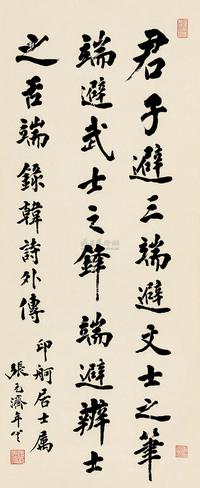 君子避三端避文士之筆
端避武士之鋒端避辯士
之舌端錄韓詩外傳
印舸居士屬
張元濟年